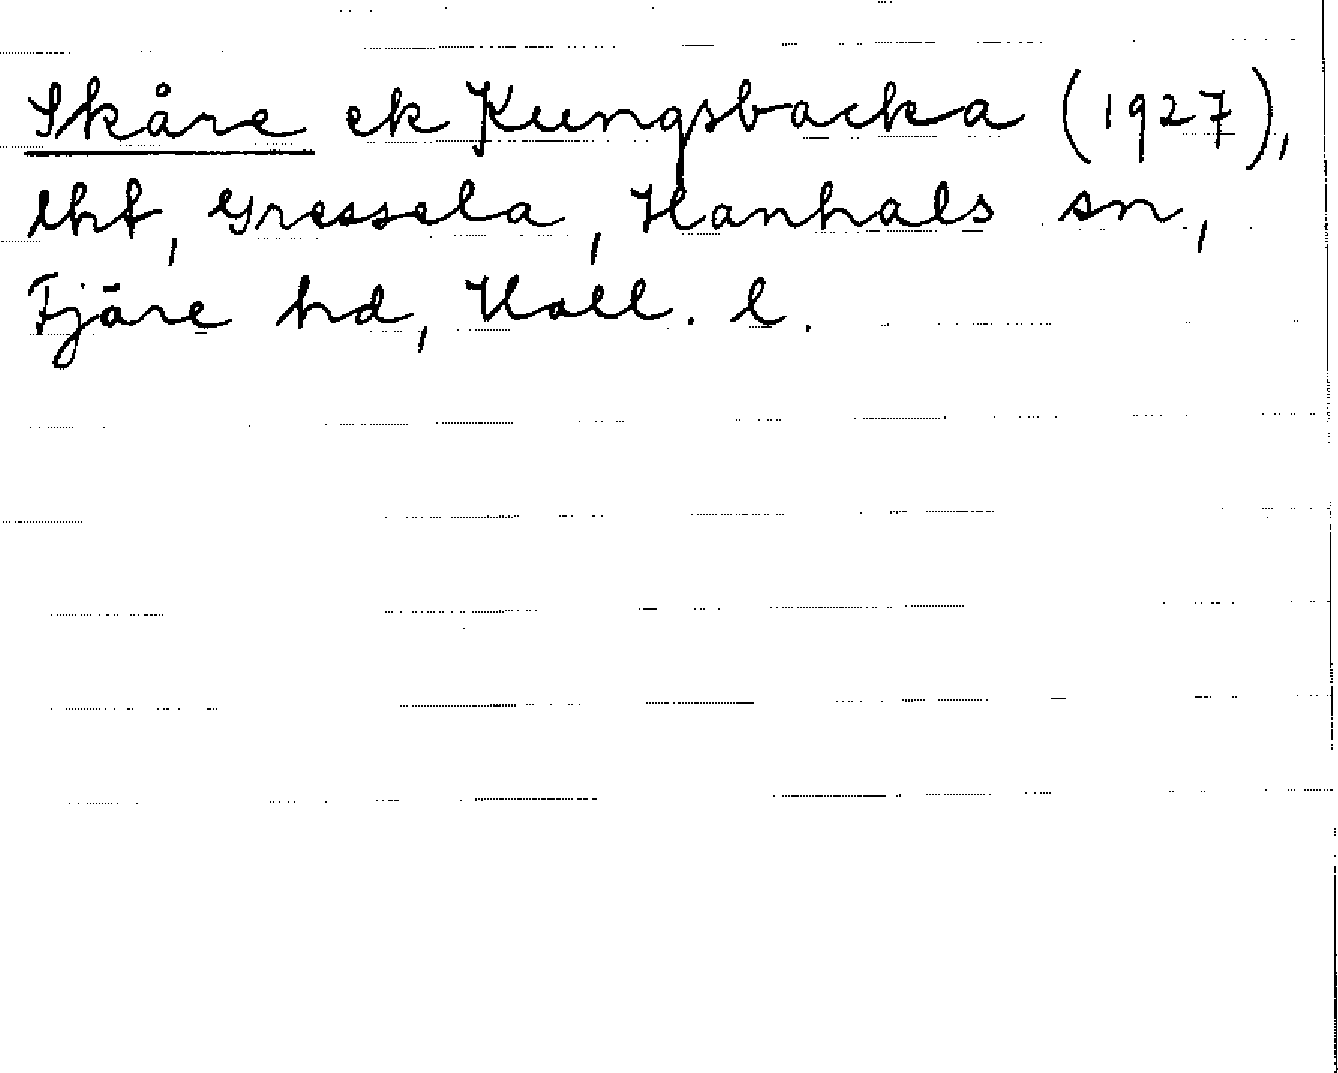 Skåre ek Kungsbacka (1927),
lht, Gressela, Hanhals sn,
Fjäre hd, Hall. l.